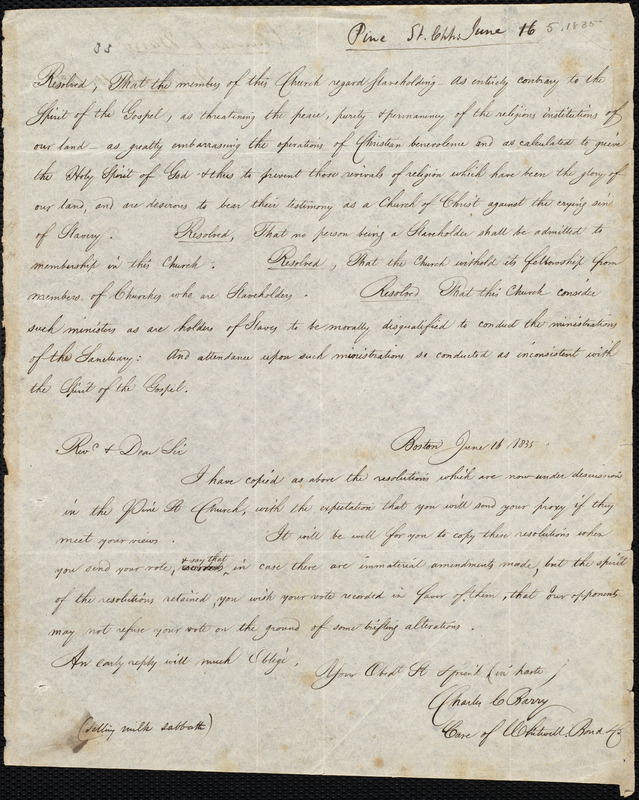 33
Pine St. Chh: June 16 5. 1835
Resolved, That the members of this Church regard slaveholding as entirely contrary to the
Spirit of the Gospel, as threatining the peace, purity & permanency of the religious institutions of
our land – as greatly embarrassing the operations of Christian benevolence and as calculated to grieve
the Holy Spirit of God & thus to prevent those revivals of religion which have been the glory of
our land, and are desirous to bear their testimony as a Church of Christ against the crying sin
of Slavery. Resolved, That no person being a Slaveholder shall be admitted to
membership in this Church. Resolved, That the Church withold its fellowship from
members of Churches who are Slaveholders. Resolved That this Church consider
such ministers as are holders of Slaves to be morally disqualified to conduct the ministrations
of the Sanctuary: And attendance upon such ministrations so conducted as inconsistent with
the Spirit of the Gospel.
Boston June 16 1835
Revd & Dear Sir
I have copied as above the resolutions which are now under discussion
in the Pine St Church, with the expectation that you will send your proxy if they
meet your views. It will be well for you to copy these resolutions when
you send your vote, & say that in case there are immaterial amendments made, but the spirit
of the resolutions retained, you wish your vote recorded in favor of them, that our opponents
may not refuse your vote on the ground of some trifling alterations.
An early reply will much Oblige,
Your Obedt St & friend (in haste)
Charles C Barry
Care of Whitwell, Bond & Co
(selling milk sabbath)